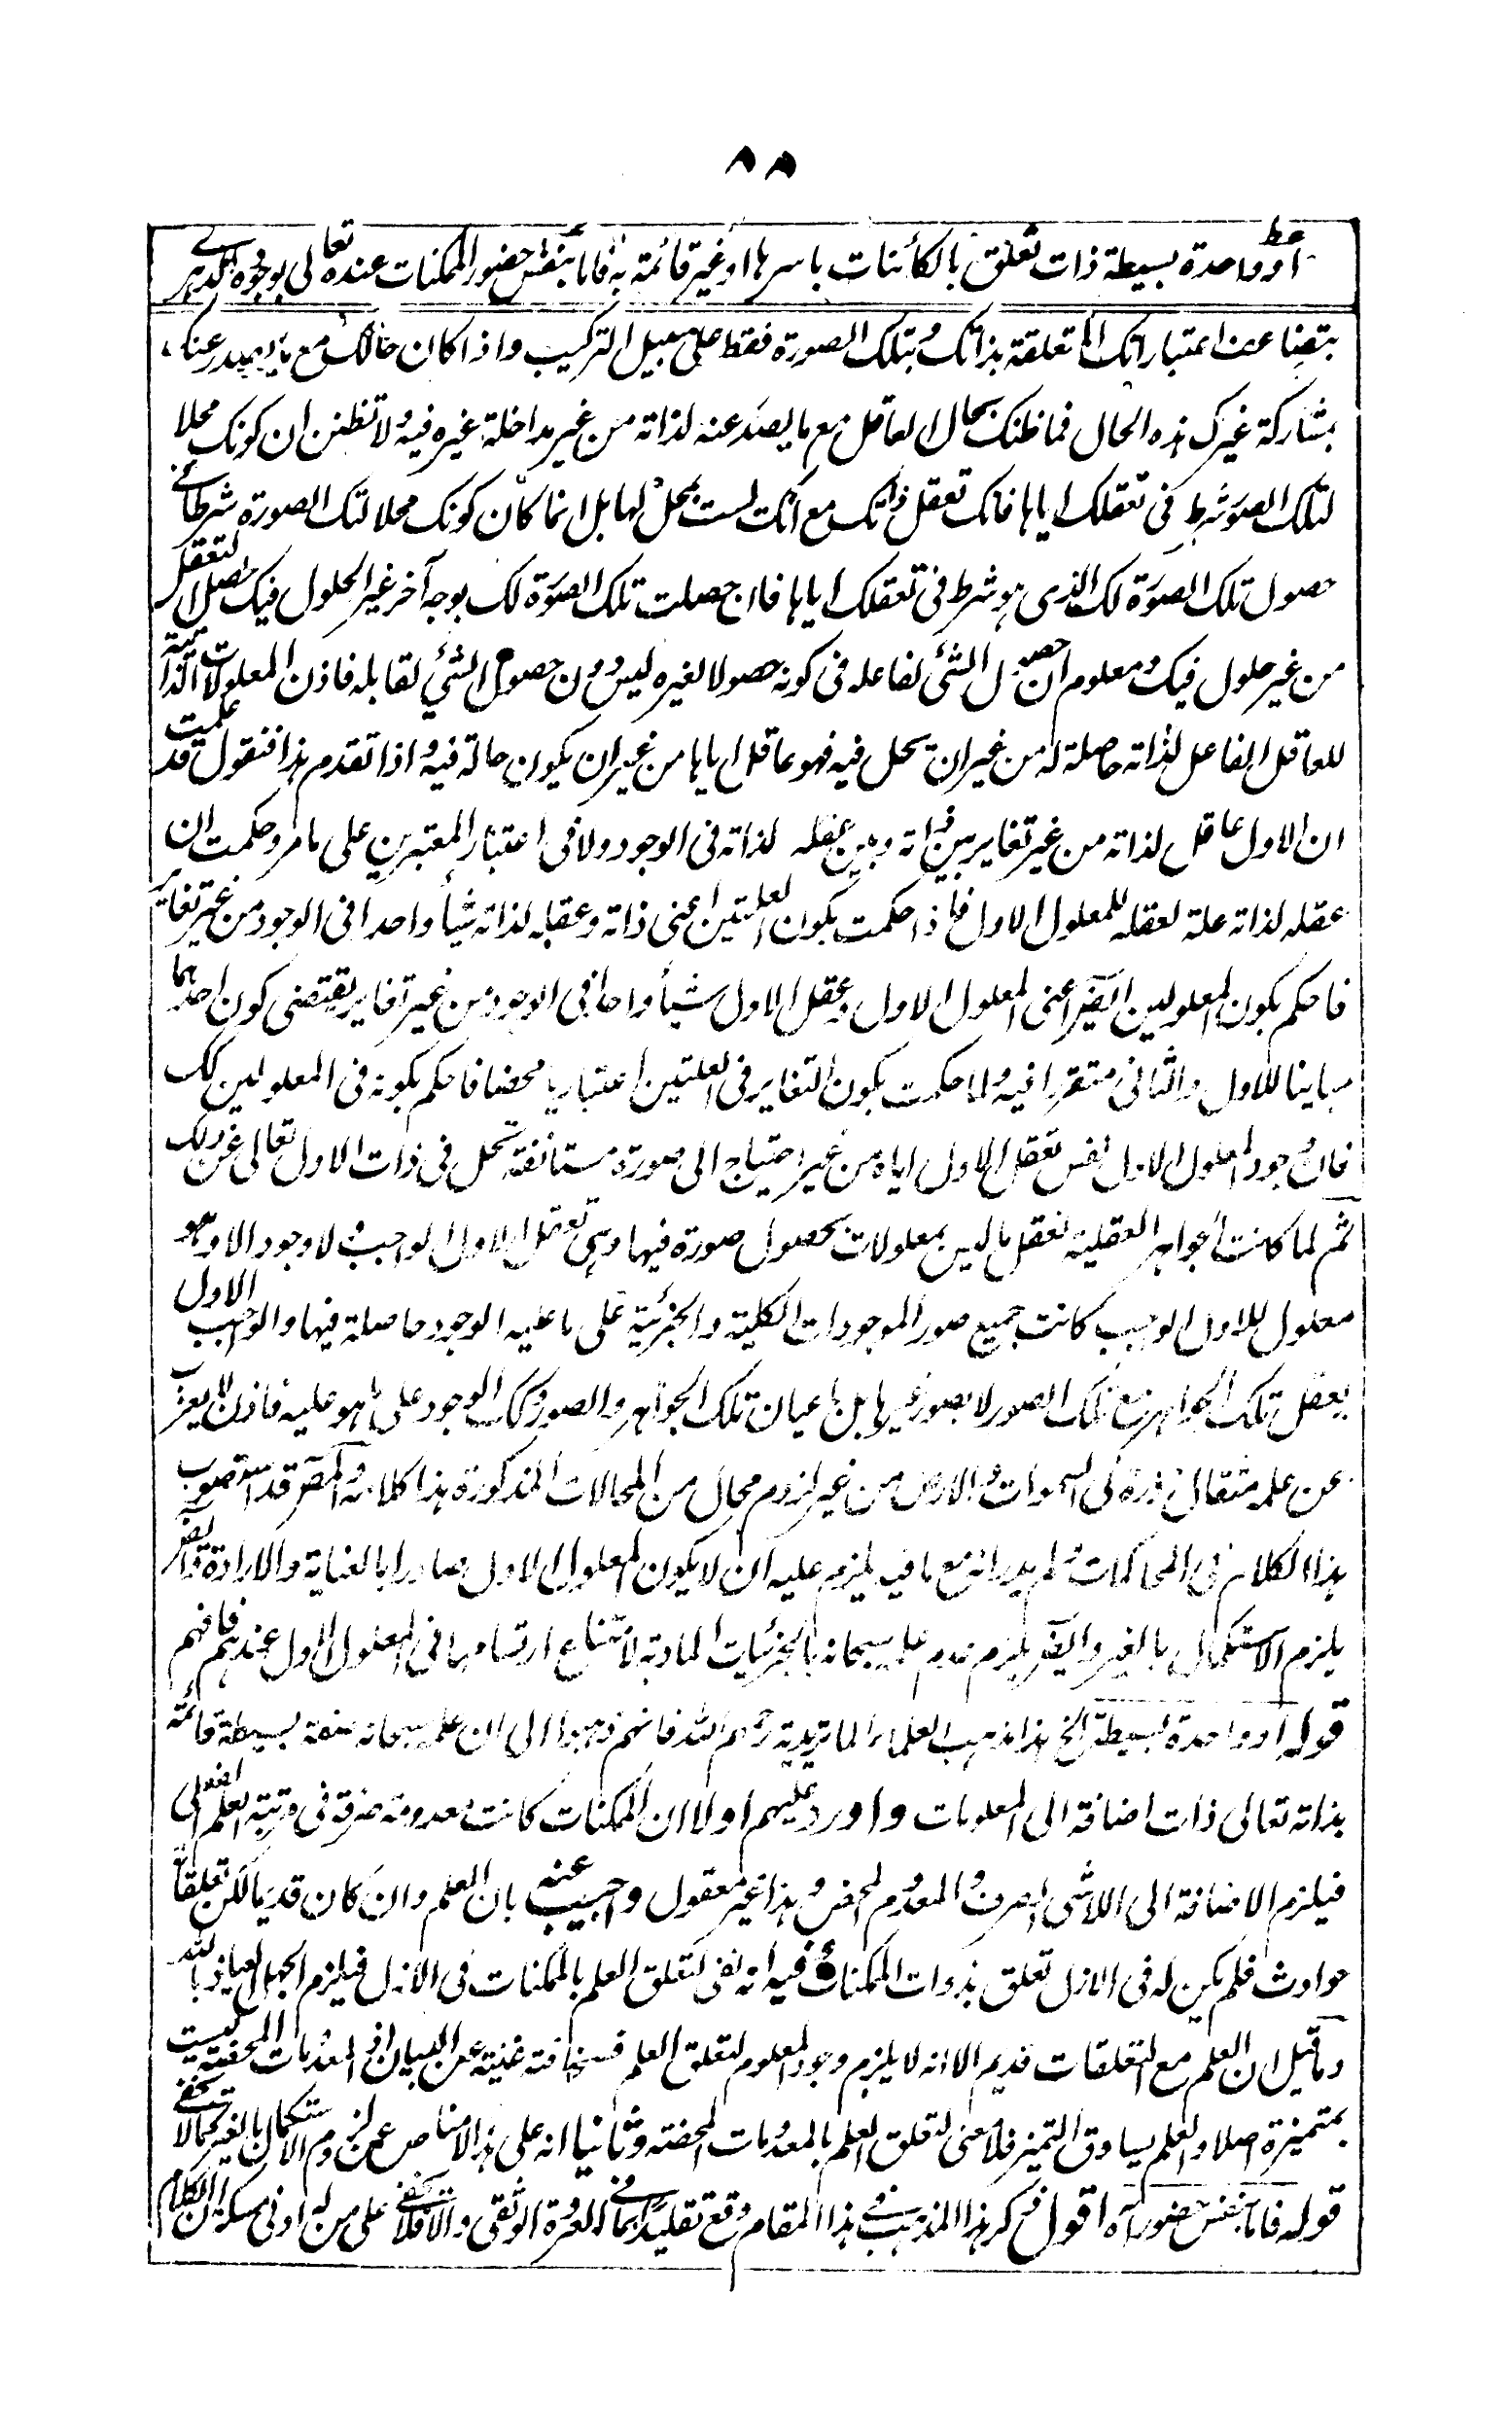 ٨٨
او واحدة بسيطة ذات تعلق بالكائنات باسرها او غير قائمة به فاما بنفس حضور الممكنات عنده تعالى بوجوده الدهرى
اعتباراتك المتعلقة بذاتك وبتلك الصورة فقط على سبيل التركيب واذا كان حالك مع ما يصدر عنك
بمشاركة غيرك هذه الحال فما ظنك بحال العاقل مع ما يصدر عنه لذاته من غير مداخلة غيره فيه ولا تظنن ان كونك محلا
لتلك الصورة شرط فى تعقلك اياها فانك تعقل ذاتك مع انك لست بمحل لها بل انما كان كونك محلا لتلك الصورة شرطا فى
حصول تلك الصورة لك الذى هو شرط فى تعقلك اياها فان حصلت تلك الصورة لك بوجه آخر غير الحلول فيك حصل التعقل
من غير حلول فيك ومعلوم ان حصول الشئ لفاعله فى كونه حصولا لغيره ليس دون حصول الشئ لقابله فاذن المعلولات الذاتية
للعاقل الفاعل لذاته حاصلة له من غير ان تحل فيه فهو عاقل اياها من غير ان يكون حالة فيه واذا تقدم هذا فنقول قد علمت
ان الاول عاقل لذاته من غير تغاير بين ذاته وبين عقله لذاته فى الوجود ولا فى اعتبار المعتبرين على ما مر وحكمت ان
عقله لذاته علة لعقله للمعلول الاول فاذا حكمت بكون العلتين اعنى ذاته وعقله لذاته شيأ واحدا فى الوجود من غير تغاير
فاحكم بكون المعلولين ايضا اعنى المعلول الاول وعقل الاول شيأ واحدا فى الوجود من غير تغاير يقتضى كون احدهما
مباينا للاول والثانى متقررا فيه ولما حكمت بكون التغاير فى العلتين اعتباريا محضا فاحكم بكونه فى المعلولين كك
فاذن وجود المعلول الاول نفس تعقل الاول اياه من غير احتياج الى صورة مستانفة تحل فى ذات الاول تعالى عن ذلك
ثم لما كانت الجواهر العقلية تعقل ما ليس بمعلولات بحصول صورة فيها وهى تعقل الاول الواجب ولا وجود الا وهو
معلول للاول الواجب كانت جميع صور الموجودات الكلية والجزئية على ما عليه الوجود حاصلة فيها والواجب الاول
يعقل تلك الجواهر مع تلك الصور لا بصور غيرها بل باعيان تلك الجواهر والصور وكك الوجود على ما هو عليه فاذن لا يعزب
عن علمه مثقال ذرة فى السموات والارض من غير لزوم محال من المحالات المذكورة هذا كلامه والمص قد استصوب
هذا الكلام فى المحاكمات ولم يدر انه مع ما فيه يلزم عليه ان لا يكون المعلول الاول صادرا بالعناية والارادة وايضا
يلزم الاستكمال بالغير وايضا يلزم عدم علمه سبحانه بالجزئيات المادية لامتناع ارتسامها فى المعلول الاول عندهم فافهم
قوله او واحدة بسيطة الخ هذا مذهب العلماء الماتريدية رحمهم الله فانهم ذهبوا الى ان علمه سبحانه صفة بسيطة قائمة
بذاته تعالى ذات اضافة الى المعلومات واورد عليهم اولا ان الممكنات كانت معدومة صرفة فى مرتبة العلم الفعلى
فيلزم الاضافة الى اللاشئ الصرف والمعدوم المحض وهذا غير معقول واجيب عنه بان العلم وان كان قديما لكن تعلقاته
حوادث فلم يكن له فى الازل تعلق بذوات الممكنات وفيه انه نفى لتعلق العلم بالممكنات فى الازل فيلزم الجهل العياذ بالله
وما قيل ان العلم مع التعلقات قديم الا انه لا يلزم وجود المعلوم لتعلق العلم فسخافته غنية عن البيان اذ المعدومات المحضة ليست
بمتميزة اصلا والعلم يساوق التميز فلا معنى لتعلق العلم بالمعدومات المحضة وثانيا انه على هذا لا مناص عن لزوم الاستكمال بالغير كما لا يخفى
قوله فاما بنفس حضور آه اقول ذكر هذا المذهب فى هذا المقام وقع تقليدا لما فى العروة الوثقى والا فلا يخفى على من له ادنى مسكة ان الكلام